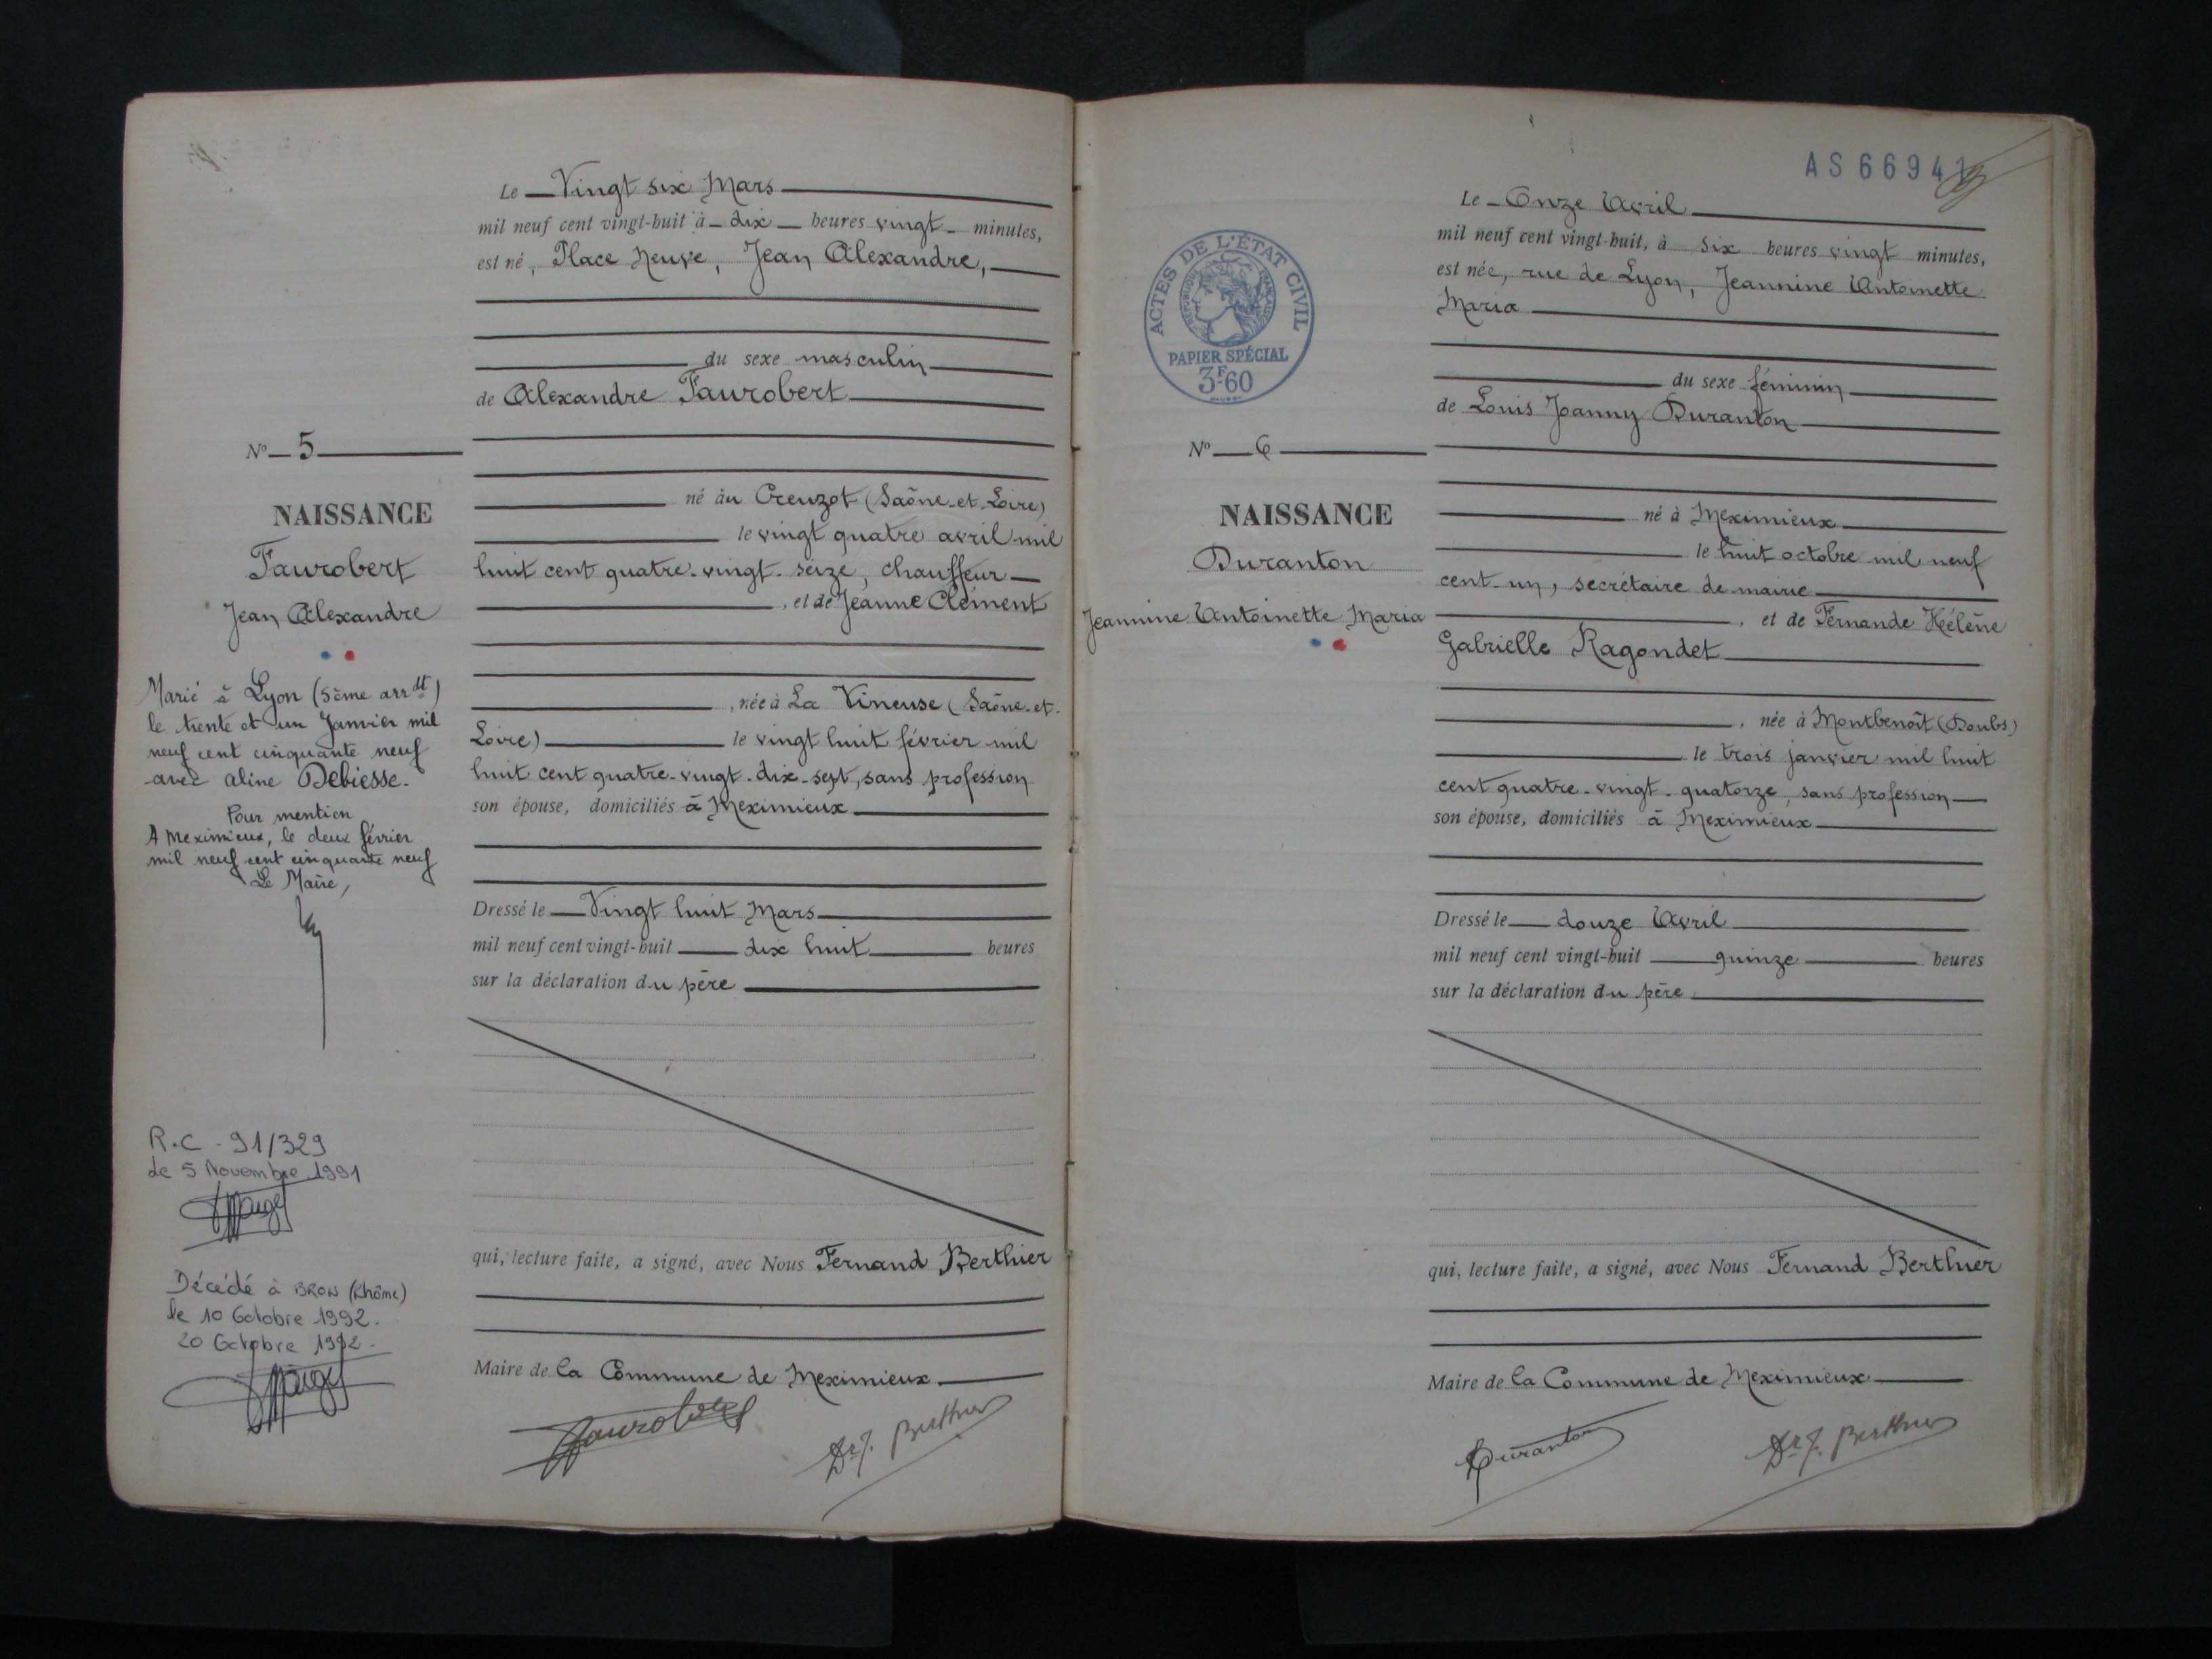 Le Vingt six Mars
mil neuf cent vingt-huit à dix heures vingt minutes,
est né, Place Neuve, Jean Alexandre,
du sexe masculin
de Alexandre Faurobert
né au Creuzot (Saône-et-Loire)
le vingt quatre avril mil
huit cent quatre-vingt-seize, chauffeur
, et de Jeanne Clément
, née à La Vineuse (Saône-et-
Loire) le vingt huit février mil
huit cent quatre-vingt-dix-sept, sans profession
son épouse, domiciliés à Meximieux
Dressé le Vingt huit Mars
mil neuf cent vingt-huit dix huit heures
sur la déclaration du père
qui, lecture faite, a signé, avec Nous Fernand Berthier
Maire de la Commune de Meximieux
Faurobert
Dr F. Berthier
N° 5
NAISSANCE
Faurobert
Jean Alexandre
Marié à Lyon (5ème arrdt)
le trente et un Janvier mil
neuf cent cinquante neuf
avec Aline Debiesse.
Pour mention
A Meximieux, le deux février
mil neuf cent cinquante neuf
Le Maire,
R.C - 91/329
de 5 Novembre 1991
Décédé à BRON (Rhône)
le 10 Octobre 1992.
20 Octobre 1992.
AS 6694
ACTES DE L'ÉTAT CIVIL
RÉPUBLIQUE FRANÇAISE
PAPIER SPÉCIAL
3F60
Le Onze Avril
mil neuf cent vingt-huit, à six heures vingt minutes,
est née, rue de Lyon, Jeannine Antoinette
Maria
du sexe féminin
de Louis Joanny Duranton
né à Meximieux
le huit octobre mil neuf
cent-un, secrétaire de mairie
, et de Fernande Hélène
Gabrielle Ragondet
, née à Montbenoît (Doubs)
le trois janvier mil huit
cent quatre-vingt-quatorze, sans profession
son épouse, domiciliés à Meximieux
Dressé le douze Avril
mil neuf cent vingt-huit quinze heures
sur la déclaration du père
qui, lecture faite, a signé, avec Nous Fernand Berthier
Maire de la Commune de Meximieux
Duranton
Dr F. Berthier
N° 6
NAISSANCE
Duranton
Jeannine Antoinette Maria